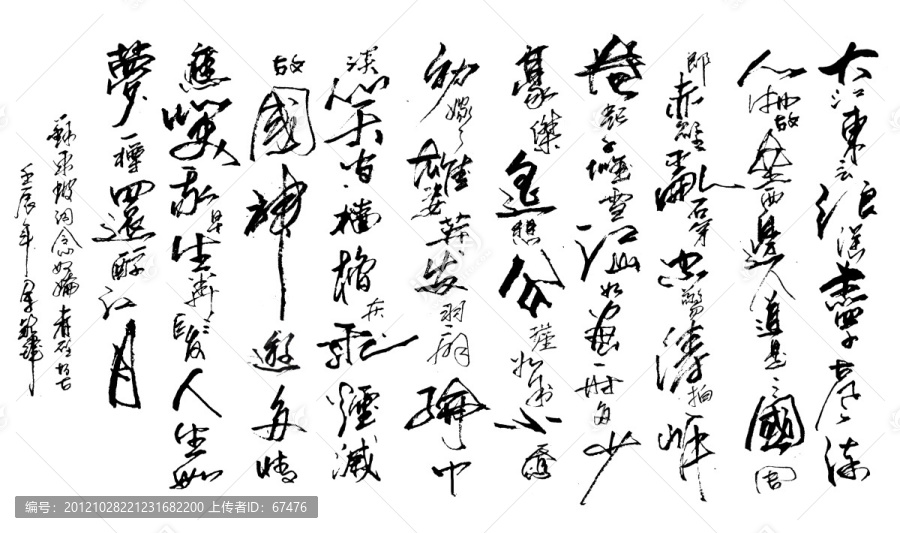 大江東去浪淘盡千古風流
人物故壘西邊人道是三國周
郎赤壁亂石穿空驚濤拍岸
捲起千堆雪江山如畫一時多少
豪傑遙想公瑾當年小喬
初嫁了雄姿英發羽扇綸巾
談笑間檣櫓灰飛煙滅
故國神遊多情
應笑我早生華髮人生如
夢一樽還酹江月
蘇東坡詞念奴嬌赤壁懷古
壬辰年
编号：20121028221231682200 上传者ID：67476